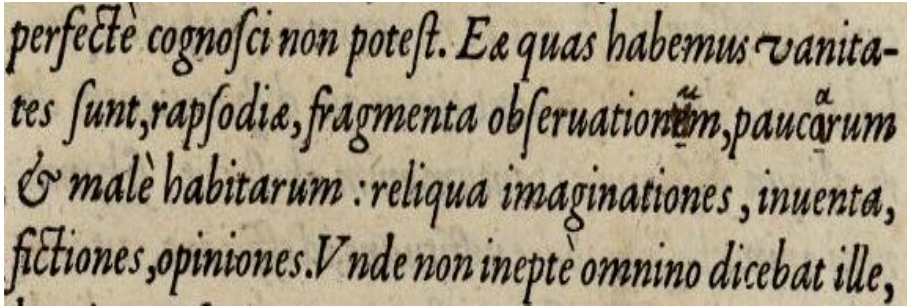 perfectè cognoſci non poteſt. Eæ quas habemus vanita-
tes ſunt, rapſodiæ, fragmenta obſeruationum, paucarum
& malè habitarum : reliqua imaginationes, inuenta,
fictiones, opiniones. Vnde non ineptè omnino dicebat ille,